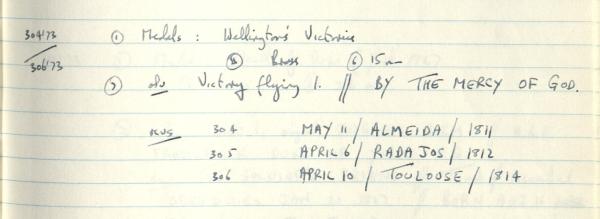 304'73 ① Medals : Wellington's Victories
306'73 Brass ⑥ 15 mm
⑤ obv Victory flying l. // BY THE MERCY OF GOD.
revs 304 MAY 11 / ALMEIDA / 1811
305 APRIL 6 / BADAJOS / 1812
306 APRIL 10 / TOULOUSE / 1814